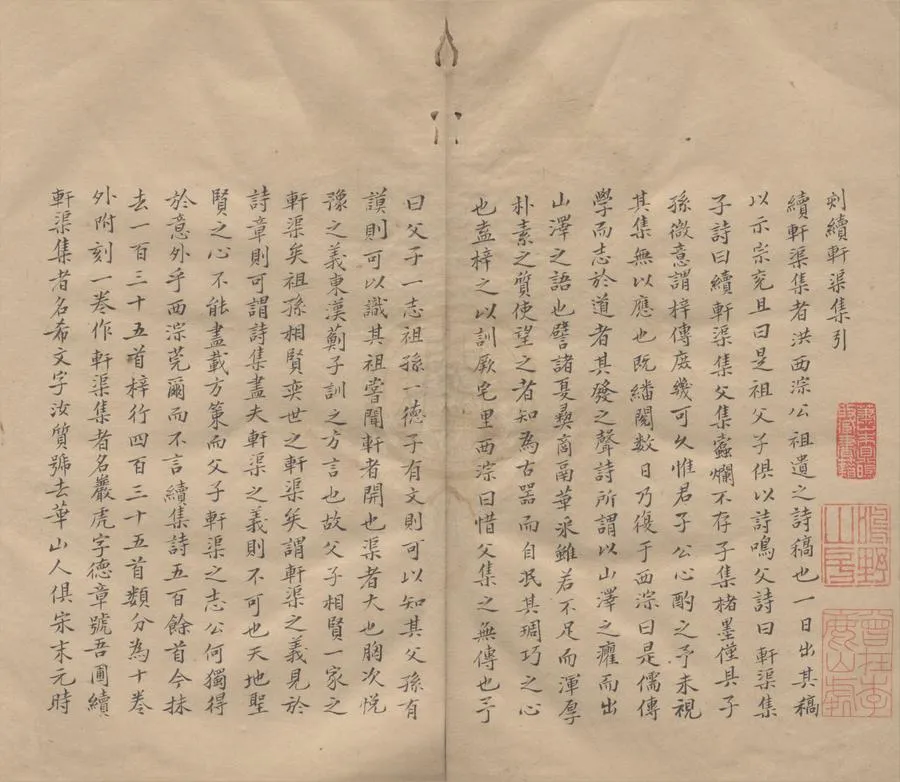 刻續軒渠集引
續軒渠集者洪西淙公祖遺之詩稿也一日出其稿
以示宗兗且曰是祖父子俱以詩鳴父詩曰軒渠集
子詩曰續軒渠集父集蠹爛不存子集楮墨僅具子
孫微意謂梓傳庶幾可久惟君子公心酌之予未視
其集無以應也既繙閱數日乃復于西淙曰是儒傳
學而志於道者其發之聲詩所謂以山澤之癯而出
山澤之語也譬諸夏彝商鬲華采雖若不足而渾厚
朴素之質使望之者知為古器而自泯其琱巧之心
也盍梓之以訓厥宅里西淙曰惜父集之無傳也予
曰父子一志祖孫一德子有文則可以知其父孫有
謨則可以識其祖嘗聞軒者開也渠者大也胸次悅
豫之義東漢薊子訓之方言也故父子相賢一家之
軒渠矣祖孫相賢奕世之軒渠矣謂軒渠之義見於
詩章則可謂詩集盡夫軒渠之義則不可也天地聖
賢之心不能盡載方策而父子軒渠之志公何獨得
於意外乎西淙莞爾而不言續集詩五百餘首今抹
去一百三十五首梓行四百三十五首類分為十卷
外附刻一卷作軒渠集者名巖虎字德章號吾圃續
軒渠集者名希文字汝質號去華山人俱宋末元時